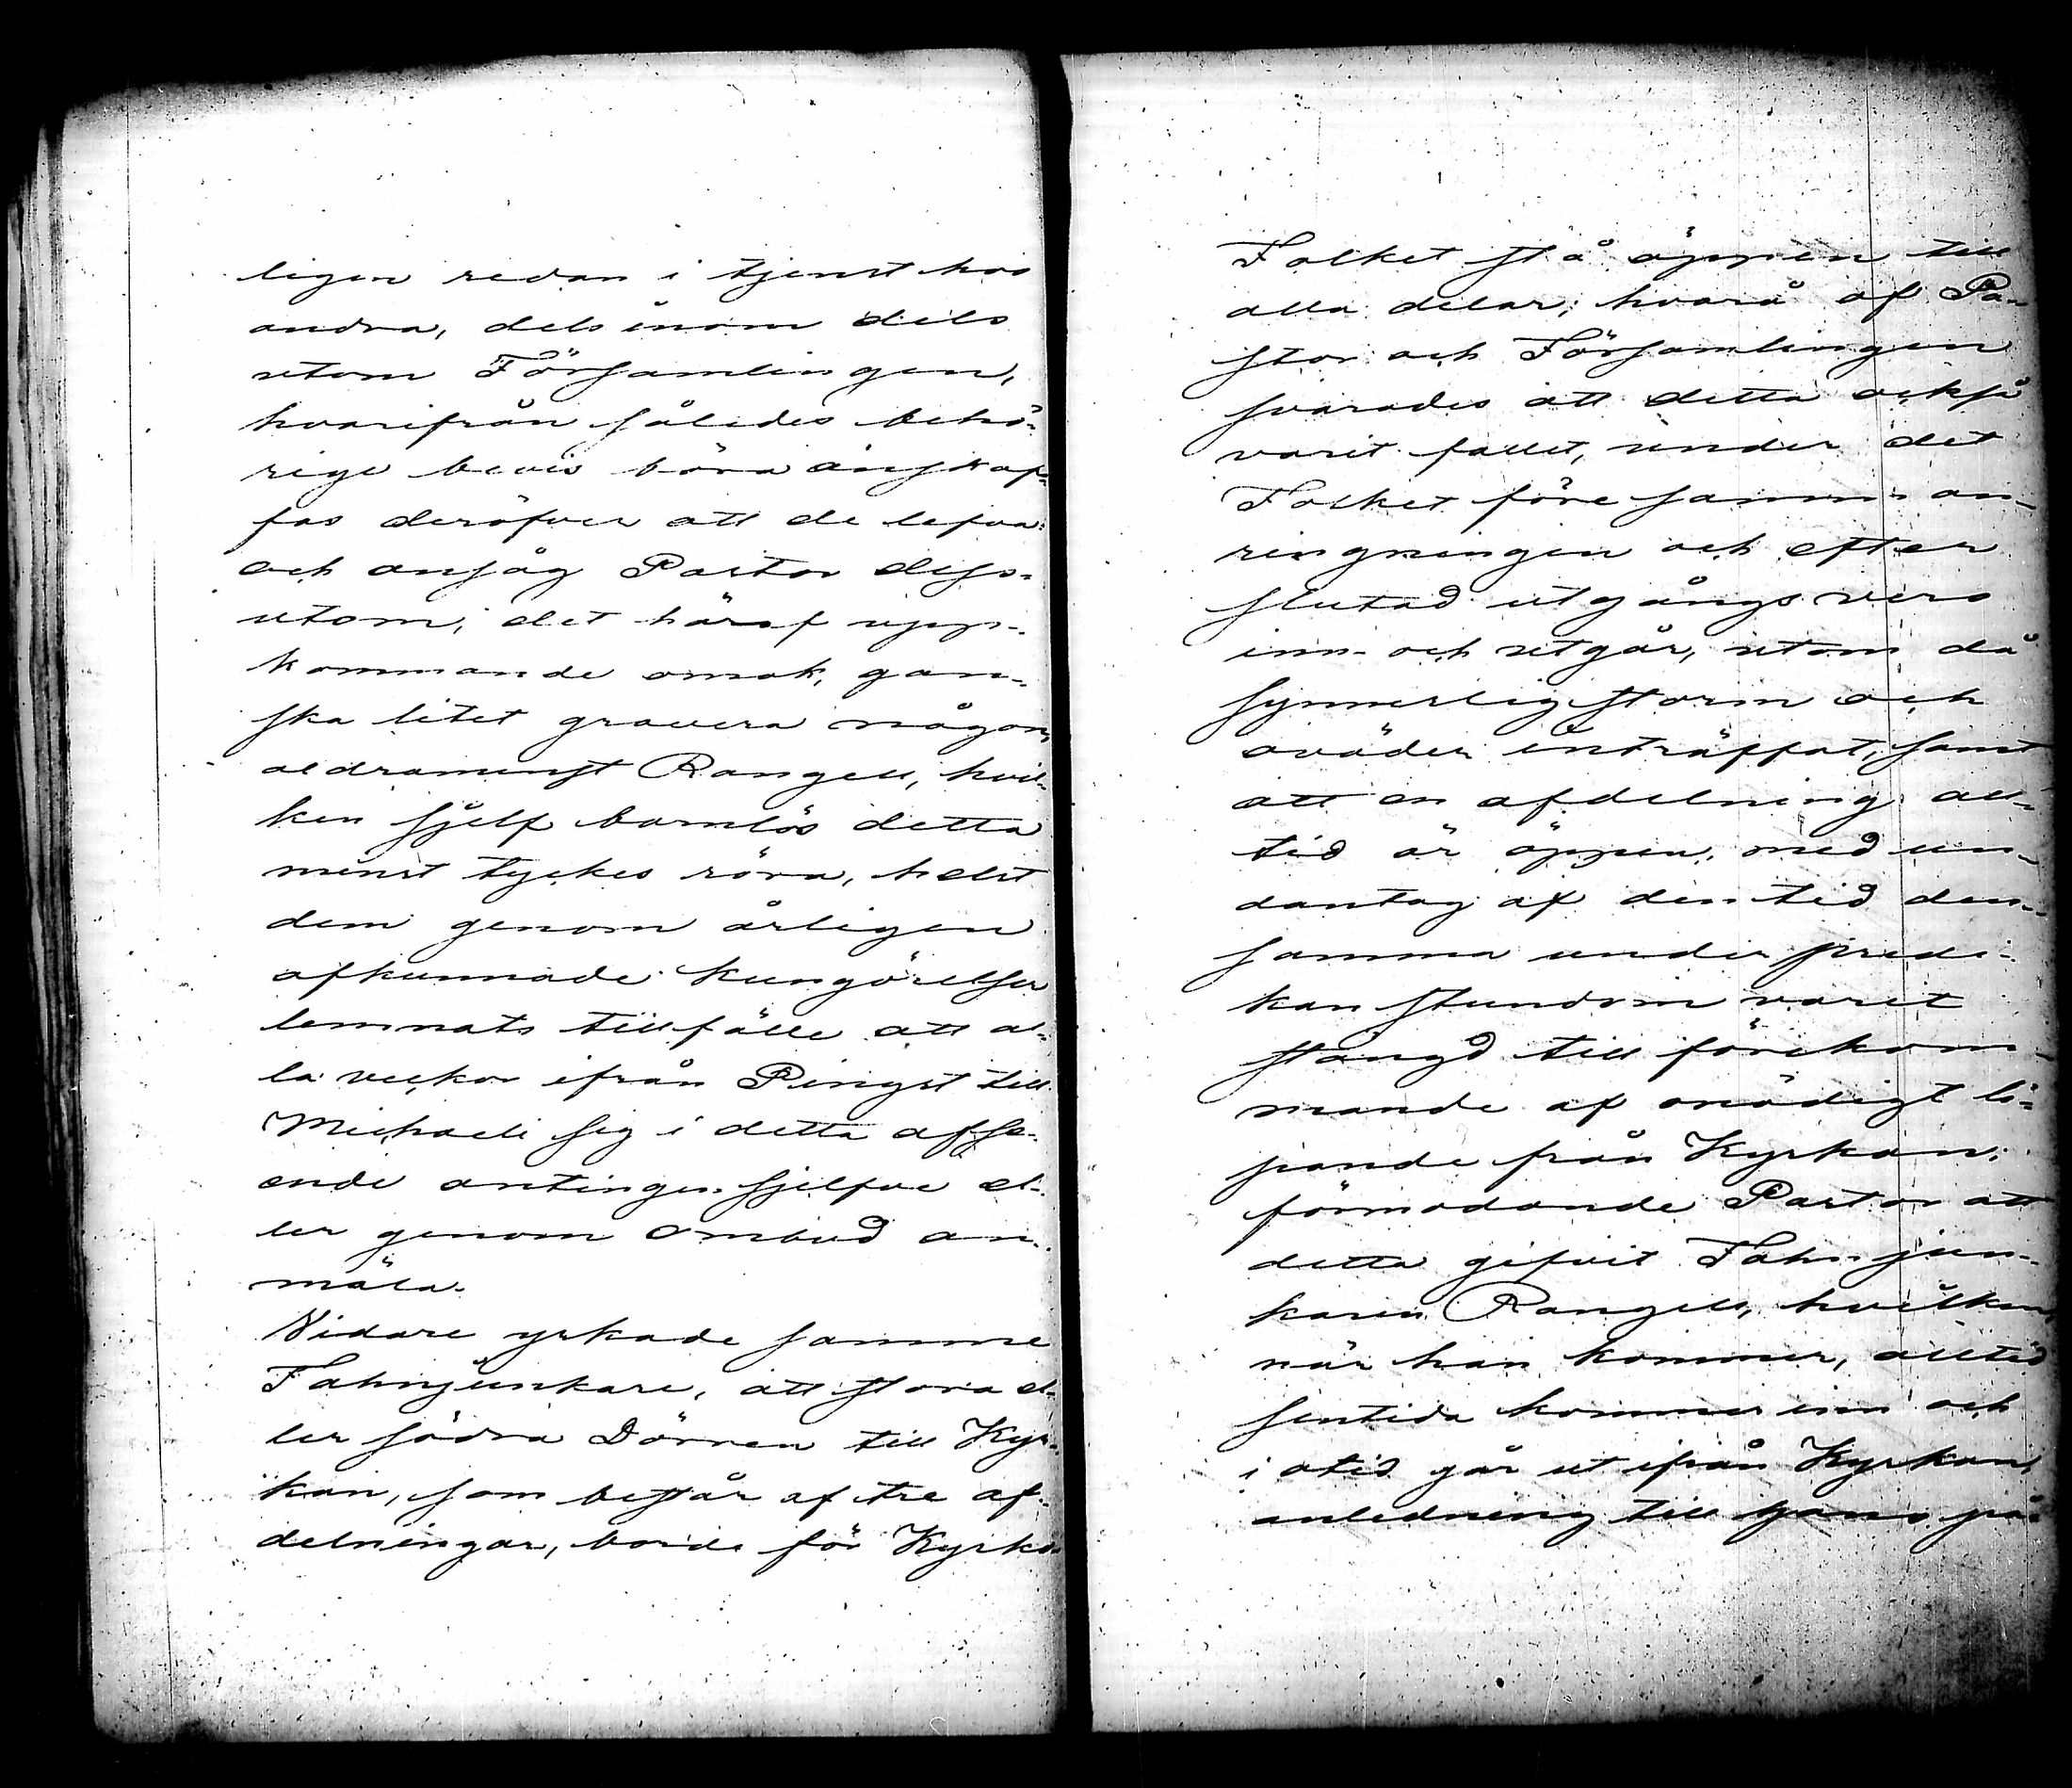 ligen redan i tjenst hos
andra, dels inom dels
utom Församlingen,
hvarifrån således behö-
rige bevis böra anskaf-
fas deröfver att de lefva:
och ansåg Pastor dess-
utom, det häraf upp-
kommande omak, gan-
ska litet gravera någon,
aldraminst Rangell, hvil-
ken sjelf barnlös detta
minst tyckes röra, helst
dem genom årligen
afkunnade kungörelser
lemnats tillfälle att al-
la veckor ifrån Pingst till
Michaeli sig i detta afse-
ende antingen sjelfve el-
ler genom ombud an-
mäla.
Vidare yrkade samme
Fahnjunkare, att stora el-
ler södra Dörren till Kyr-
kan, som består af tre af-
delningar, borde för Kyrko-
Folket stå öppen till
alla delar; hvarå af Pa-
stor och Församlingen
svarades att detta också
varit fallet, under det
Folket före samman-
ringningen och efter
slutad utgångsvers
inn- och utgår, utom då
synnerlig storm och
oväder inträffat, samt
att en afdelning all-
tid är öppen, med un-
dantag af den tid den-
samma under predi-
kan stundom varit
stängd till förekom-
mande af onödigt lö-
pande från Kyrkan;
förmodande Pastor att
detta gifvit Fahnjun-
karen Rangell, hvilken,
när han kommer, alltid
sentida kommer inn och
i otid går ut ifrån Kyrkan,
anledning till hans på-